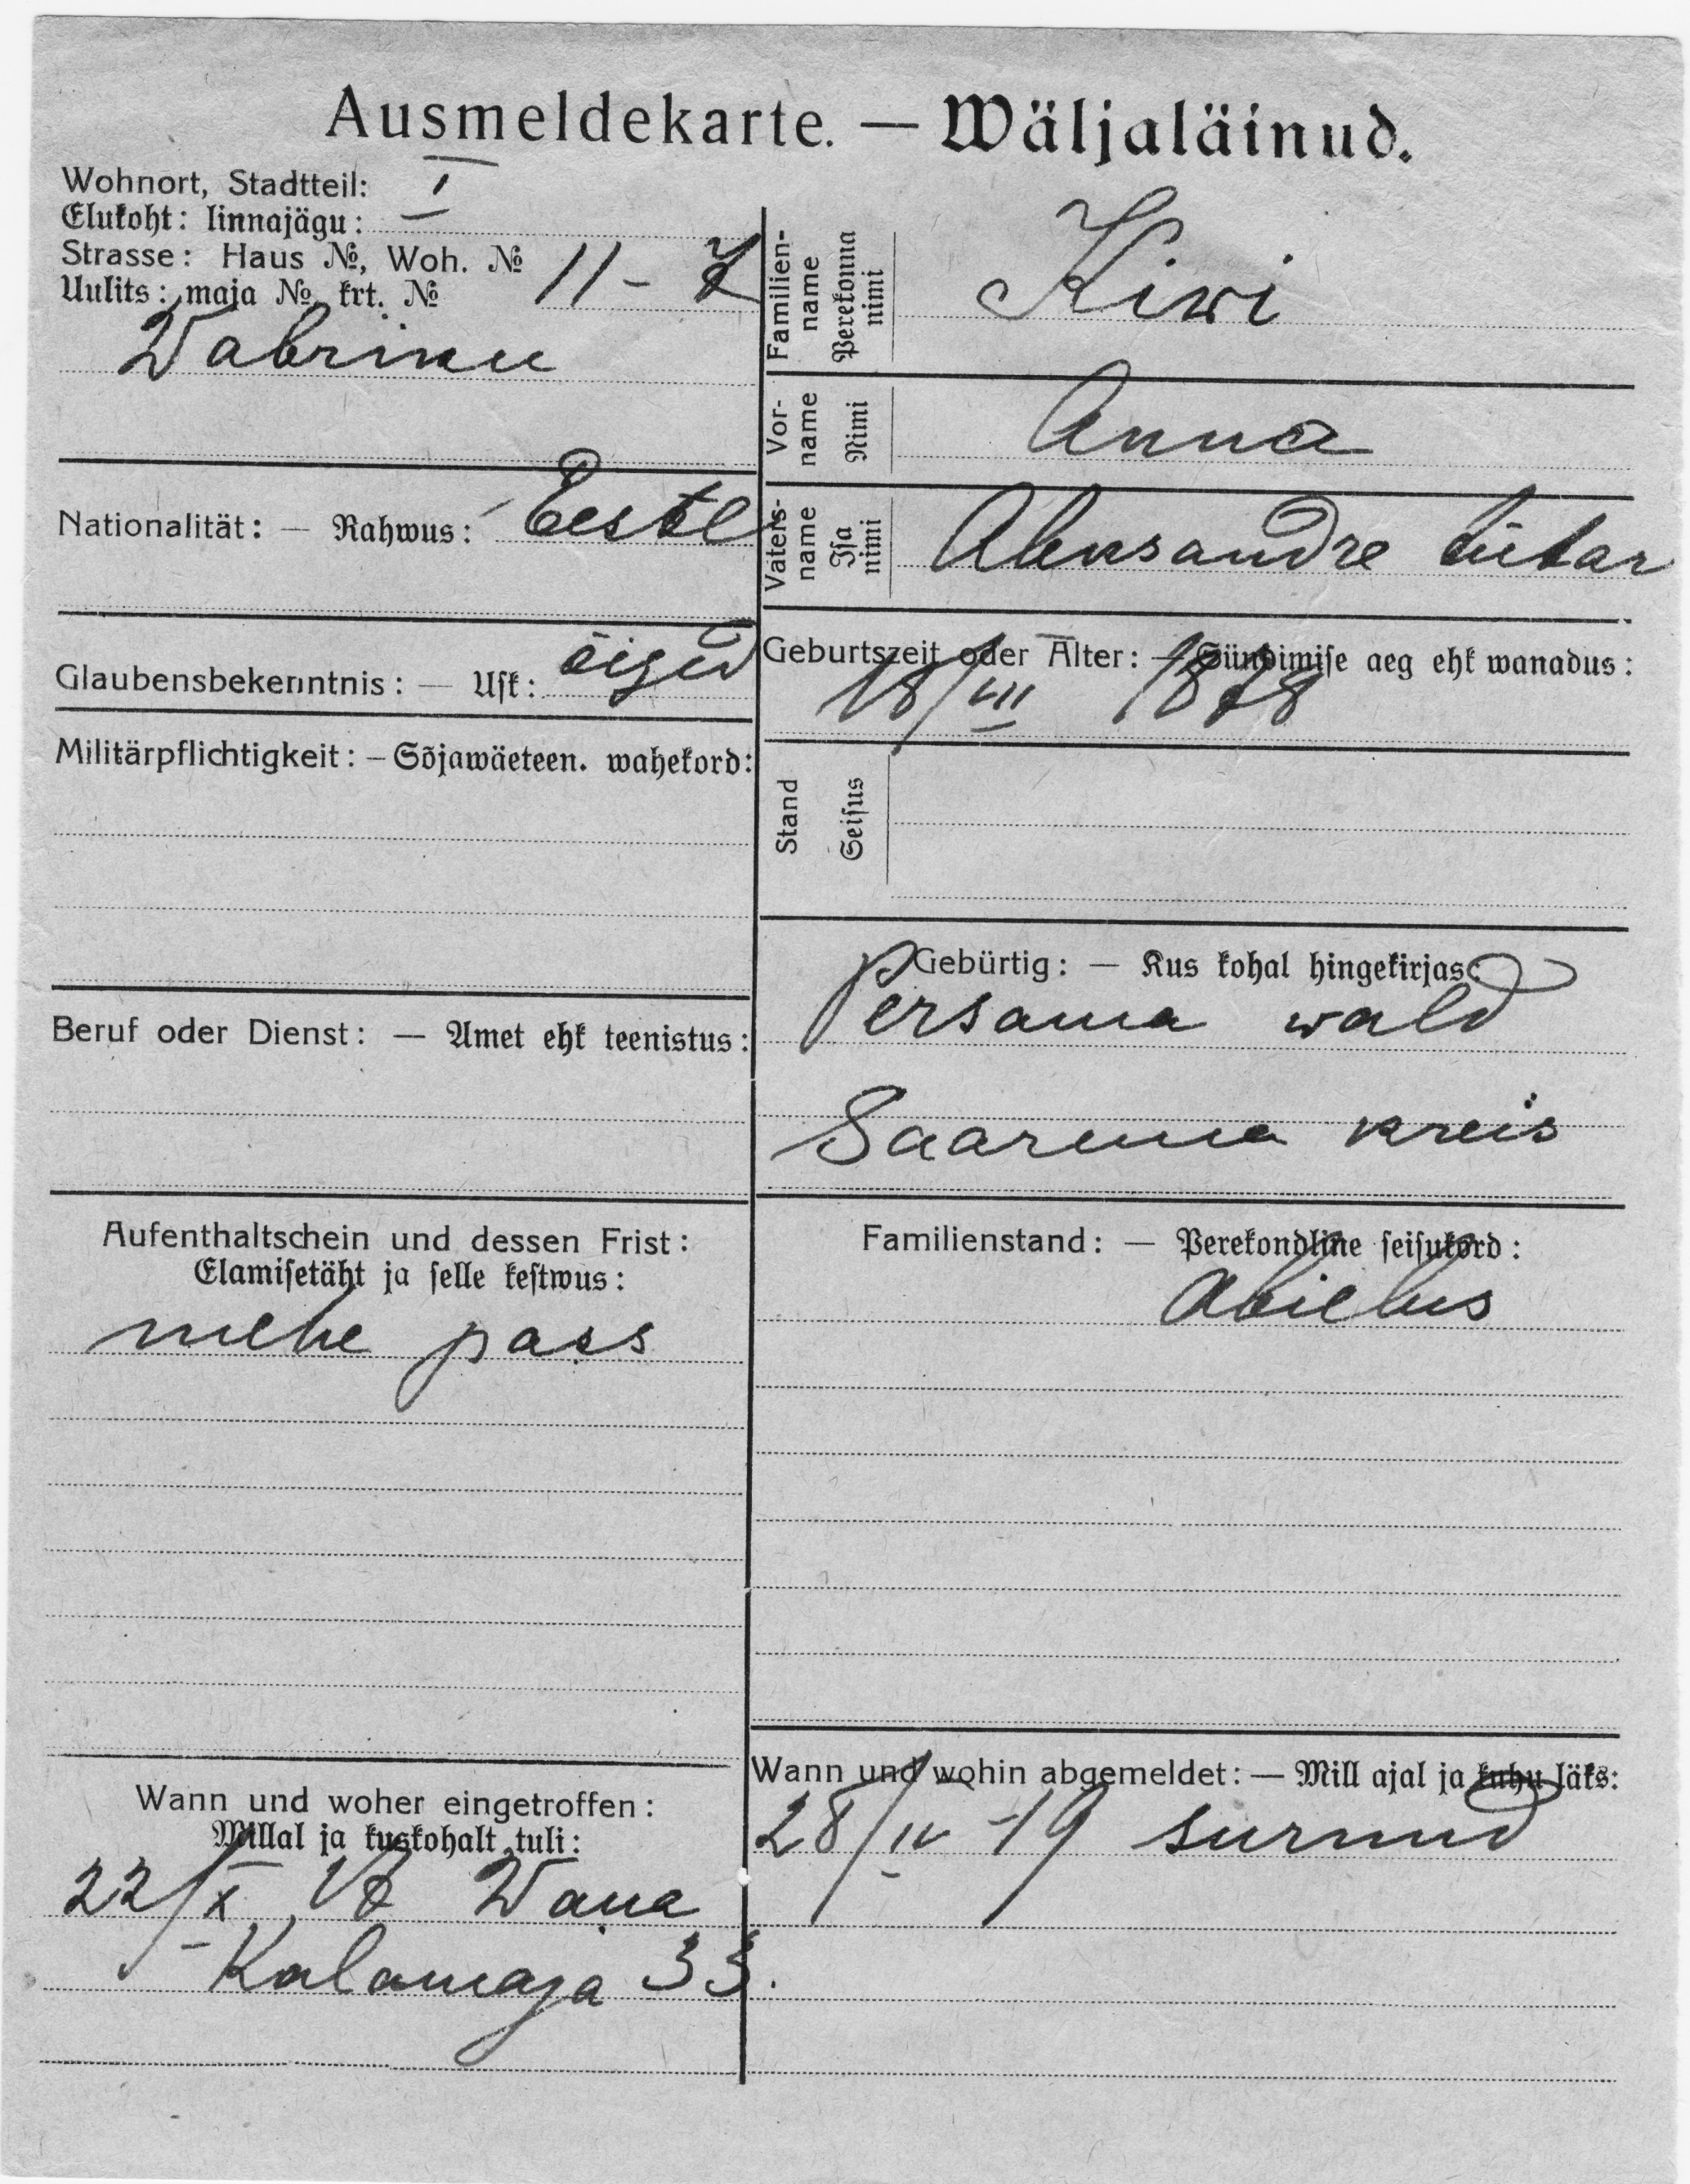 Ausmeldekarte. — Wäljaläinud.
Wohnort, Stadtteil: I
Elukoht: linnajägu:
Strasse: Haus №, Woh. № 11 - 7
Uulits: maja № krt. №
Wabriku
Nationalität: — Rahwus: Eestl
Glaubensbekenntnis: — Usk: õigeu
Militärpflichtigkeit: – Sõjawäeteen. wahekord:
Beruf oder Dienst: — Amet ehk teenistus:
Aufenthaltschein und dessen Frist:
Elamisetäht ja selle kestwus:
mehe pass
Wann und woher eingetroffen:
Millal ja kuskohalt tuli:
22/X Wana
Kalamaja 33.
Familien-name Perekonna nimi Kiwi
Vor-name Nimi Anna
Vaters-name Isa nimi Aleksandre tütar
Geburtszeit oder Alter: — Sündimise aeg ehk wanadus:
18/VII 1878
Stand Seisus
Gebürtig: — Kus kohal hingekirjas:
Persama wald
Saarema kreis
Familienstand: — Perekondline seisukord:
Abielus
Wann und wohin abgemeldet: — Mill ajal ja kuhu läks:
28/IV 19 surnud